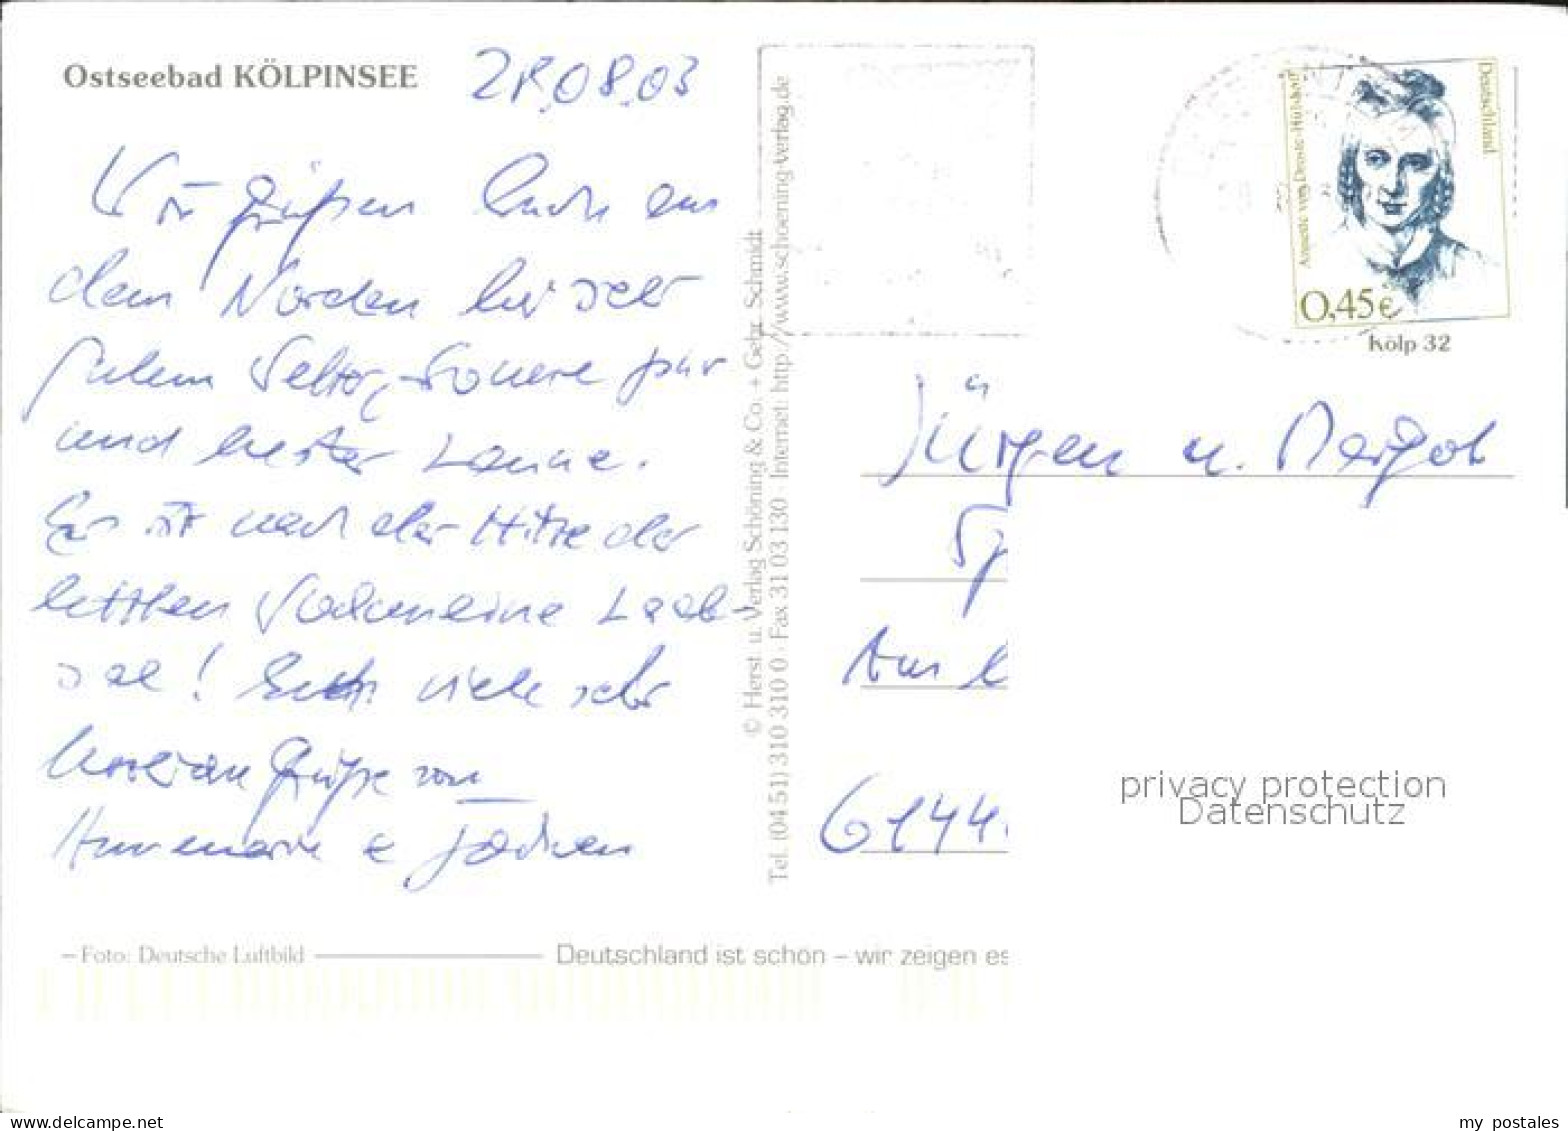 Ostseebad KÖLPINSEE
28.08.03
Wir grüßen Euch aus
dem Norden bei sehr
gutem Wetter, Sonne pur
und bester Laune.
Es ist nach der Hitze der
letzten Wochen eine Lab-
sal! Euch viele sehr
herzliche Grüße von
Annemarie & Jochen
© Herst. u. Verlag Schöning & Co. + Gebr. Schmidt
Tel. (04 51) 310 310 0 · Fax 31 03 130 Internet: http://www.schoening-verlag.de
Annette von Droste-Hülshoff
Deutschland
0,45€
Kölp 32
Jürgen u. Margot
Sp
Am
6144
privacy protection
Datenschutz
– Foto: Deutsche Luftbild
Deutschland ist schön – wir zeigen es
my postales